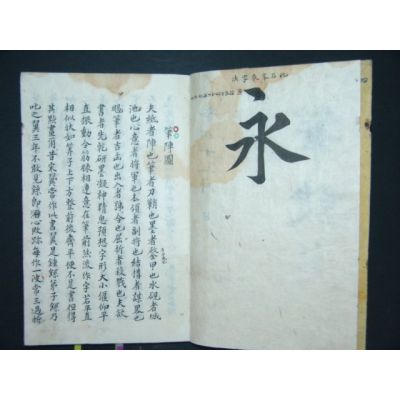 永
筆陣圖
夫紙者陣也筆者刀鞘也墨者鍪甲也水硯者城
池也心意者將軍也本領者副將也結構者謀畧也
颺筆者吉凶也出入者號令也屈折者殺戮也夫欲
書者先乾研墨凝神精思預想字形大小偃仰平
直振動令筋脉相連意在筆前然後作字若平直
相似狀如筭子上下方整前後齊平便不是書但得
其點畫爾昔宋翼常作此書翼是鍾繇弟子繇乃
叱之翼三年不敢見繇即潛心改跡每作一波常三過折